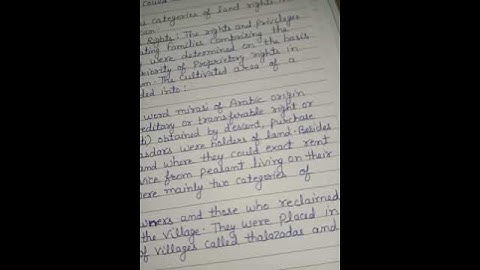 categories of land rights
Rights: The rights and privileges
families comprising the
were determined on the basis
of Proprietory rights in
The cultivated area of a
into:
word miras of Arabic origin
or transferable right or
obtained by descent, purchase
were holders of land. Besides
and where they could exact rent
from peasant living on their
mainly two categories of
and those who reclaimed
the village. They were placed in
of villages called thalazadas and